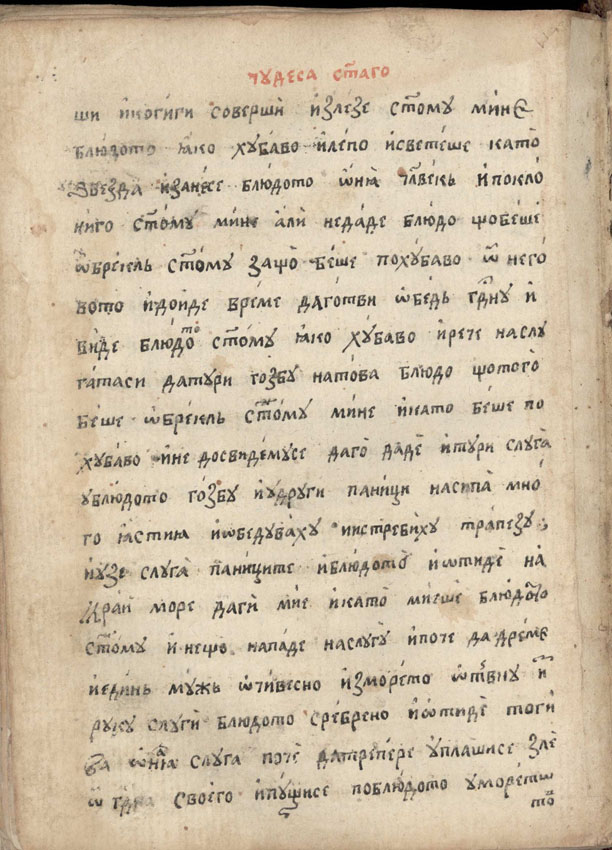 чꙋдеса ст҃аго
ши и҆когиги соверши и҆злезе ст҃омꙋ мине
блюдото ꙗко хꙋбаво и҆лепо и҆светеше като
ꙁвезда и҆занесе блюдото ѡ҆нїа чл҃векь и҆покло
ниго ст҃омꙋ мине али недаде блюдо щобеше
ѡ҆брекѐль ст҃омꙋ защо беше похꙋбаво ѿ него
вото и҆дойде време даготви ѡ҆бедь гд҃нꙋ и҆
виде блюдото ст҃омꙋ ꙗко хꙋбаво и҆рече наслꙋ
гатаси датꙋри гозбꙋ натова блюдо щотого
беше ѡ҆брекѐль ст҃омꙋ мине и҆като беше по
хꙋбаво и҆не досвидемꙋсе даго даде и҆тꙋри слꙋга
ꙋблюдото гозбꙋ и҆ꙋдрꙋги паници насипа мно
го ꙗстиꙗ и҆ѡбедꙋвахꙋ иистребихꙋ трапезꙋ
иꙋзе слꙋга паниците и҆блюдото и҆ѿиде на
край море даги мие и҆като миеше блюдото
ст҃омꙋ и҆нещо нападе наслꙋгꙋ ипоче да дреме
и҆единь мꙋжь ѡ҆чивесно и҆зморето
рꙋкꙋ слꙋги блюдото сребрено и҆ѿиде тоги
ва ѡ҆нїа слꙋга поче датрепере ꙋплашисе зле
ѿ гд҃на своего и҆пꙋщисе поблюдото ꙋморето